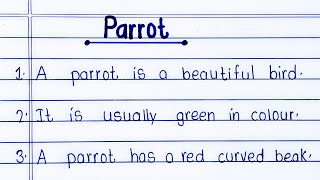 Parrot
1. A parrot is a beautiful bird.
2. It is usually green in colour.
3. A parrot has a red curved beak.